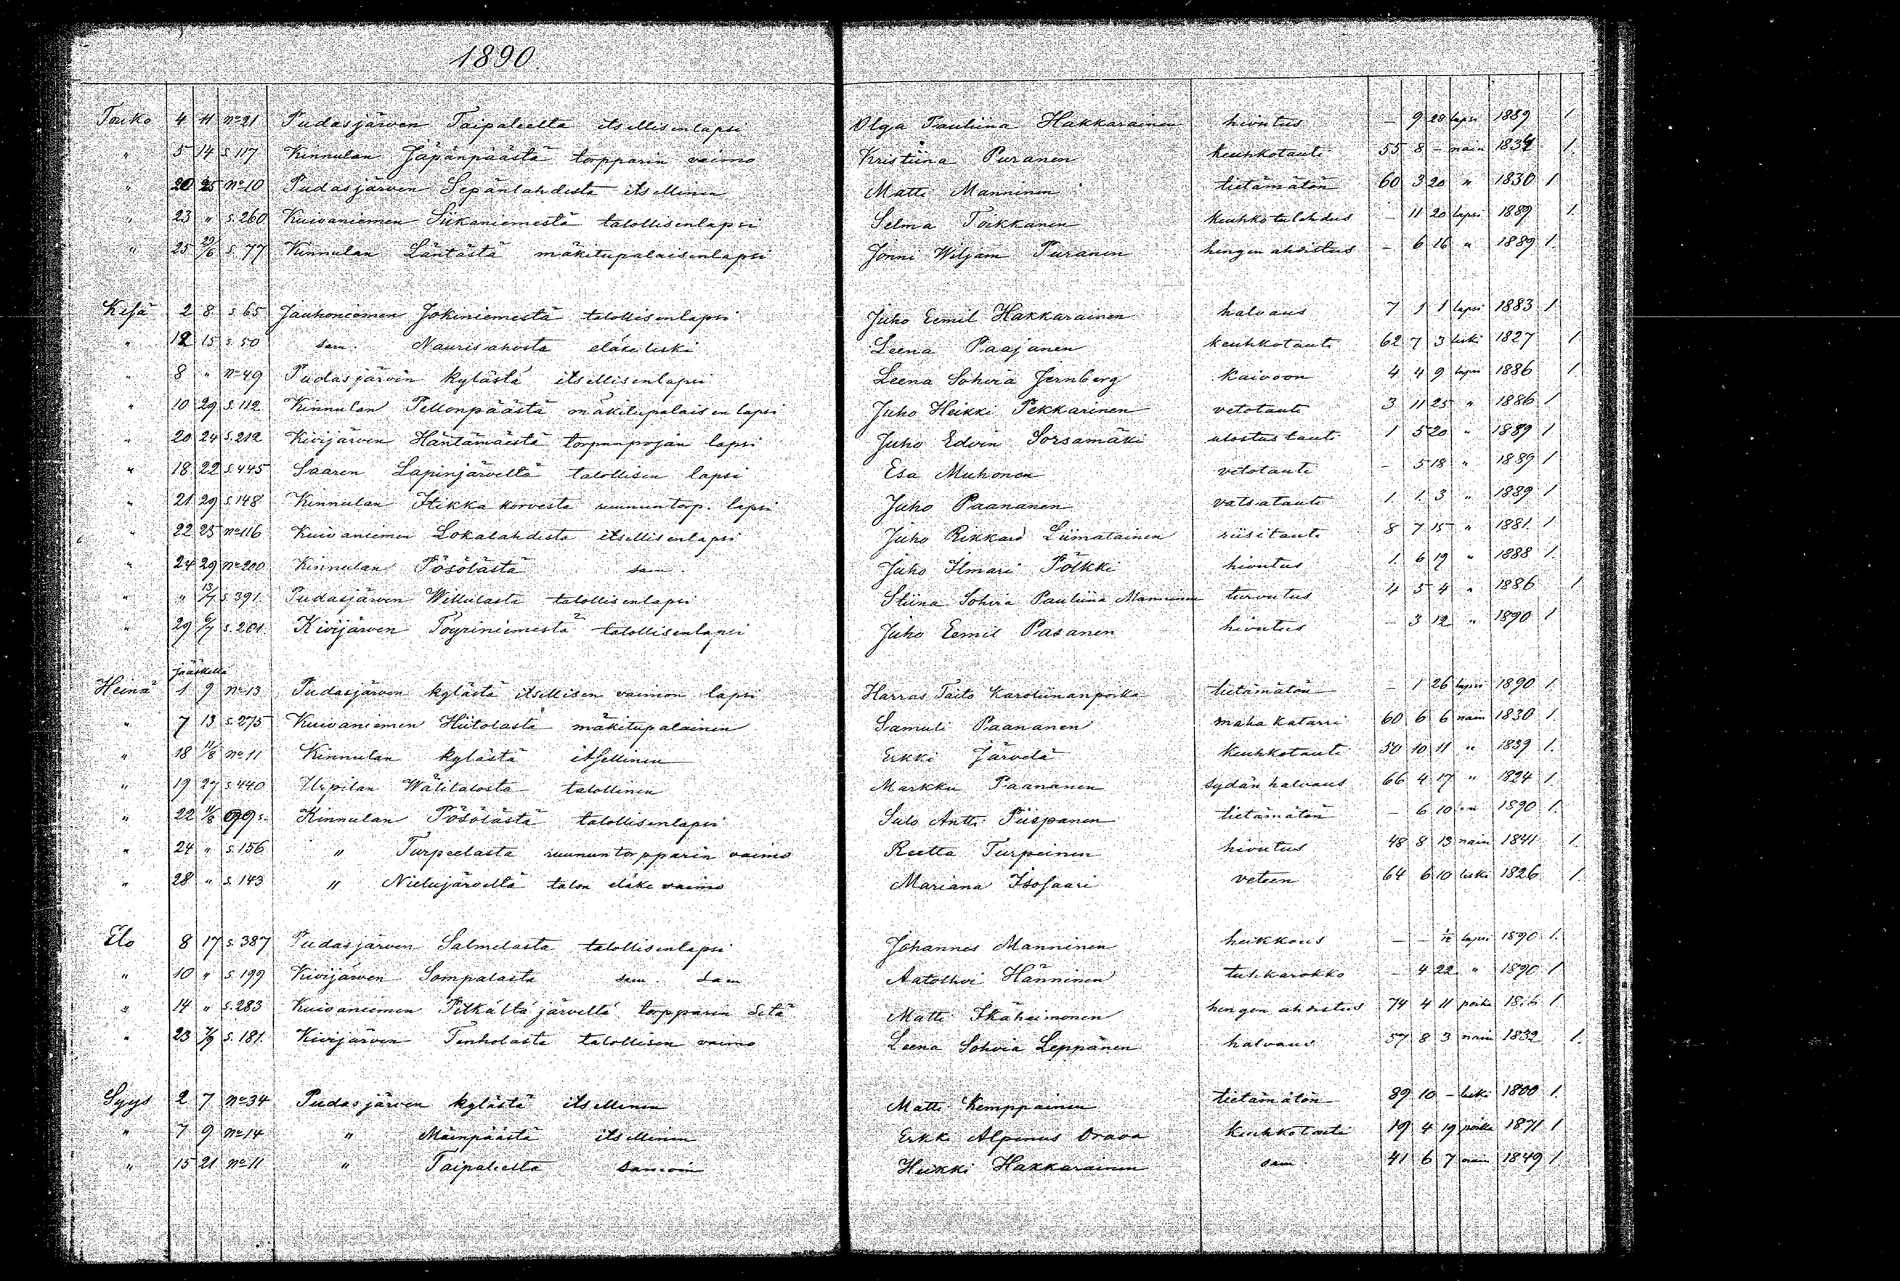 1890.
Touko 4 11 No 21 Pudasjärven Taipaleelta itsellisenlapsi Olga Pauliina Hakkarainen hivutus – 9 28 lapsi 1889 1
" 5 14 s. 117 Kinnulan Jäpänpäästä torpparin vaimo Kristiina Puranen keuhkotauti 55 8 – nain 1834 1.
" 20 25 No 10 Pudasjärven Sepänlahdesta itsellinen Matti Manninen tietämätön 60 3 20 " 1830 1
" 23 " s. 260 Kuivaniemen Siikaniemestä talollisenlapsi Selma Toikkanen keuhkotulehdus – 11 20 lapsi 1889 1.
" 25 29/6 s. 77 Kinnulan Läntästä mäkitupalaisenlapsi Jonni Wiljam Puranen hengen ahdistus – 6 16 " 1889 1.
Kesä 2 8 s. 65 Jauhoniemen Jokiniemestä talollisenlapsi Juho Eemil Hakkarainen halvaus 7 1 1 lapsi 1883 1
" 12 15 s. 50 sam. Naurisahosta eläkeleski Leena Paajanen keuhkotauti 62 7 3 leski 1827 1
" 8 " No 49 Pudasjärvin kylästä itsellisenlapsi Leena Sohvia Jernberg kaivoon 4 4 9 lapsi 1886 1
" 10 29 s. 112 Kinnulan Pellonpäästä mäkitupalaisen lapsi Juho Heikki Pekkarinen vetotauti 3 11 25 " 1886 1
" 20 24 s. 212 Kivijärven Häntämäestä torpanpojan lapsi Juho Edvin Sorsamäki ulostus tauti 1 5 20 " 1889 1
" 18 22 s. 445 Saaren Lapinjärveltä talollisen lapsi Esa Muhonen vetotauti – 5 18 " 1889 1
" 21 29 s. 148 Kinnulan Hikka korvesta ruununtorp. lapsi Juho Paananen vatsatauti 1 1 3 " 1889 1
" 22 25 No 116 Kuivaniemen Lokalahdesta itsellisenlapsi Juho Rikkard Liimatainen riisitauti 8 7 15 " 1881. 1
" 24 29 No 200 Kinnulan Pösölästä sam. Juho Ilmari Pölkki hivutus 1. 6 19 " 1888 1.
" " 13/7 s. 391. Pudasjärven Willulasta talollisenlapsi Stiina Sohvia Pauliina Manninen turvutus 4 5 4 " 1886 1
" 29 6/7 s. 201 Kivijärven Töyriniemestä talollisenlapsi Juho Eemil Pasanen hivutus – 3 12 " 1890 1
Jääskellä
Heinä 1 9 No 13 Pudasjärven kylästä itsellisen vaimon lapsi Harras Taito Karoliinanpoika tietämätön – 1 26 lapsi 1890 1.
" 7 13 s. 275 Kuivaniemen Hiitolasta mäkitupalainen Samuli Paananen maha katarri 60 6 6 nain 1830 1.
" 18 11/8 No 11 Kinnulan kylästä itsellinen Erkki Järvelä keuhkotauti 50 10 11 " 1839 1.
" 19 27 s. 440 Urpilan Wälitalosta talollinen Markku Paananen sydän halvaus 66 4 17 " 1824 1.
" 22 11/8 Kinnulan Pösölästä talollisenlapsi Sulo Antti Piispanen tietämätön – 6 10 1890 1.
" 24 " s. 156 " Turpeelasta ruununtorpparin vaimo Reetta Turpeinen hivutus 48 8 13 nain 1841 1.
" 28 " s. 143 " Nielujärveltä talon eläke vaimo Mariana Isosaari veteen 64 6 10 leski 1826 1.
Elo 8 17 s. 387 Pudasjärven Salmelasta talollisenlapsi Johannes Manninen heikkous – – 1/12 lapsi 1890 1.
" 10 " s. 199 Kivijärven Sompalasta sam. sam Aatollvi Hänninen tulikarokko – 4 22 " 1890 1
" 14 " s. 283 Kuivaniemen Pitkältäjärveltä torpparin setä Matti Ikäheimonen hengen ahdistus 74 4 11 poika 1816 1
" 23 7/9 s. 181. Kivijärven Tenholasta talollisen vaimo Leena Sohvia Leppänen halvaus 57 8 3 nain 1832 1.
Syys 2 7 No 34 Pudasjärven kylästä itsellinen Matti Kemppainen tietämätön 89 10 – leski 1800 1.
" 7 9 No 14 " Mäinpäästä itsellinen Erkki Alpinus Orava keuhkotauti 19 4 19 poika 1871 1
" 15 21 No 11 " Taipaleelta samoin Heikki Hakkarainen sam. 41 6 7 nain 1849 1